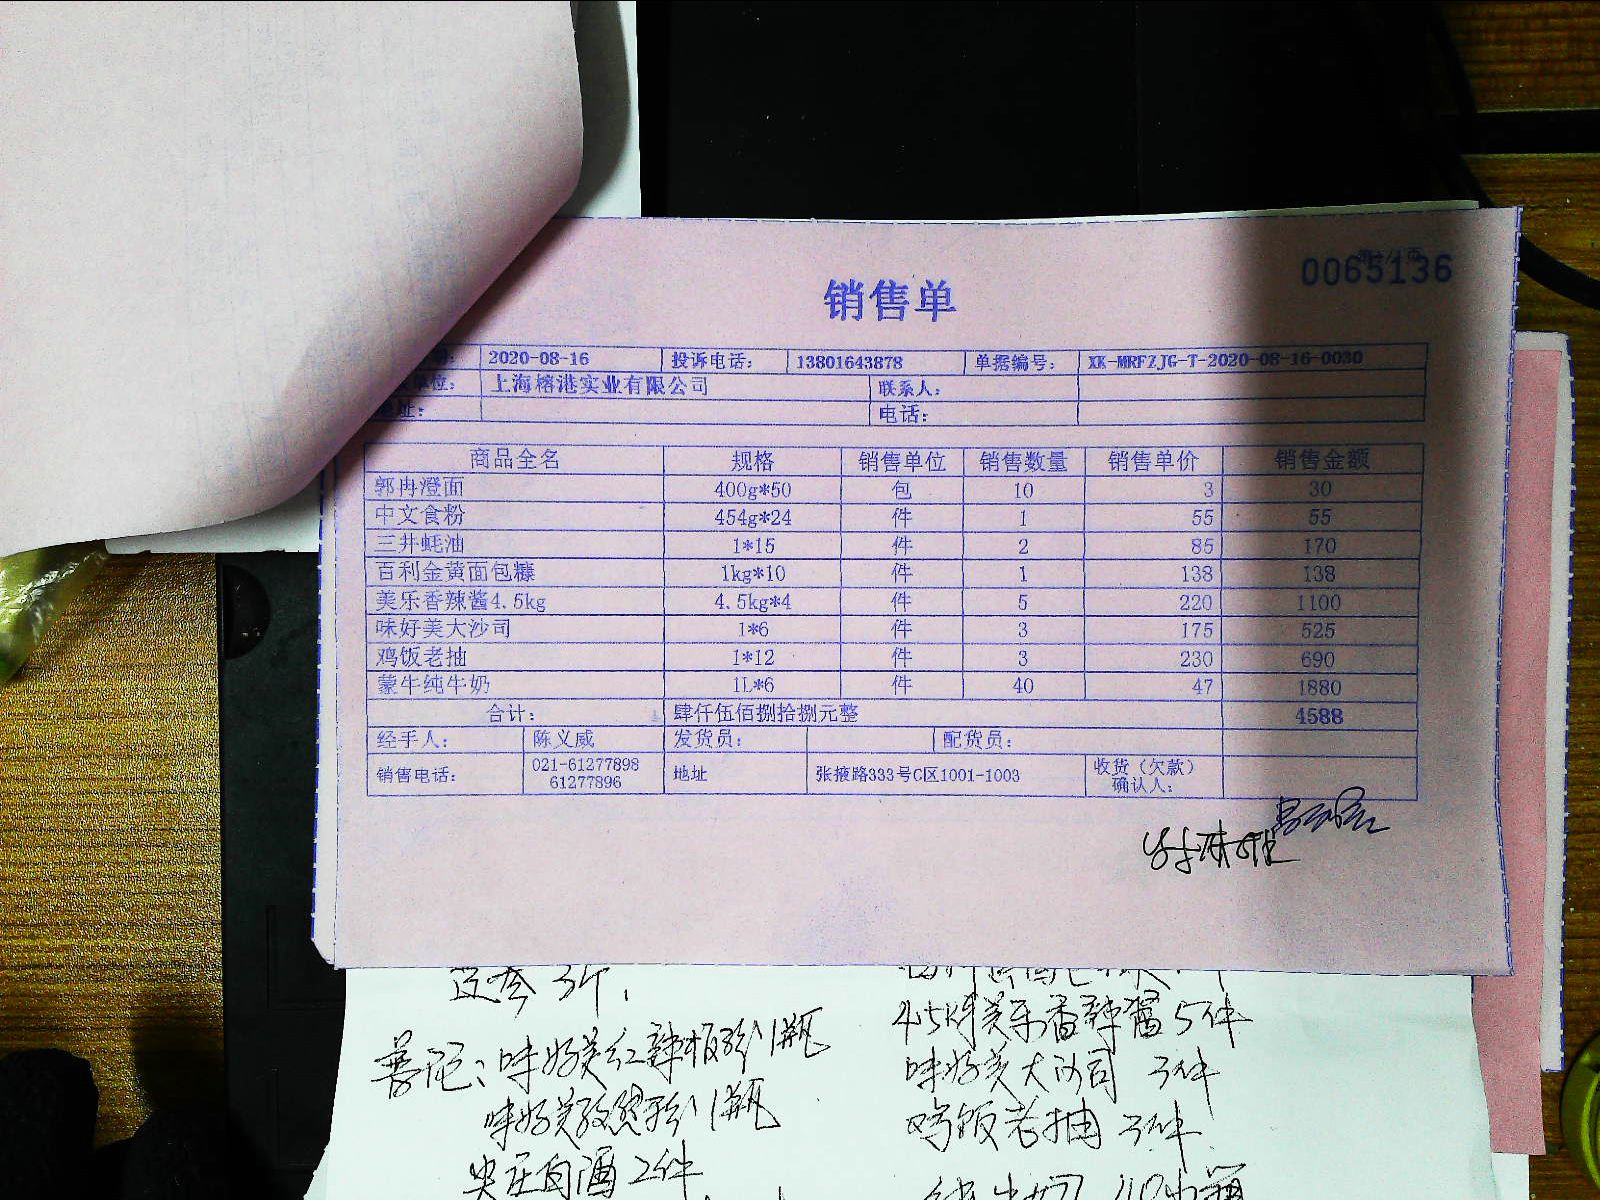 销售单
0065136
2020-08-16 投诉电话: 13801643878 单据编号: XK-MRFZJG-T-2020-08-16-0030
单位: 上海榕港实业有限公司 联系人:
地址: 电话:
商品全名 规格 销售单位 销售数量 销售单价 销售金额
郭冉澄面 400g*50 包 10 3 30
中文食粉 454g*24 件 1 55 55
三井蚝油 1*15 件 2 85 170
百利金黄面包糠 1kg*10 件 1 138 138
美乐香辣酱4.5kg 4.5kg*4 件 5 220 1100
味好美大沙司 1*6 件 3 175 525
鸡饭老抽 1*12 件 3 230 690
蒙牛纯牛奶 1L*6 件 40 47 1880
合计: 肆仟伍佰捌拾捌元整 4588
经手人: 陈义威 发货员: 配货员:
销售电话: 021-61277898 61277896 地址 张掖路333号C区1001-1003 收货(欠款)确认人:
3件
味好美红辣椒粉1瓶
味好美孜然粉1瓶
尖庄白酒2件
美乐香辣酱5件
味好美大沙司 3件
鸡饭老抽 3件